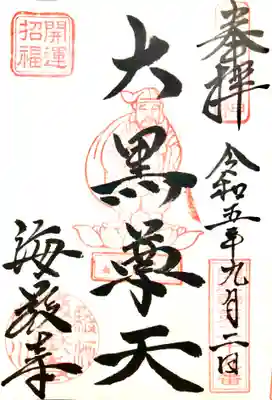 奉拝
令和五年九月二日
大黒尊天
海厳寺
開運
招福